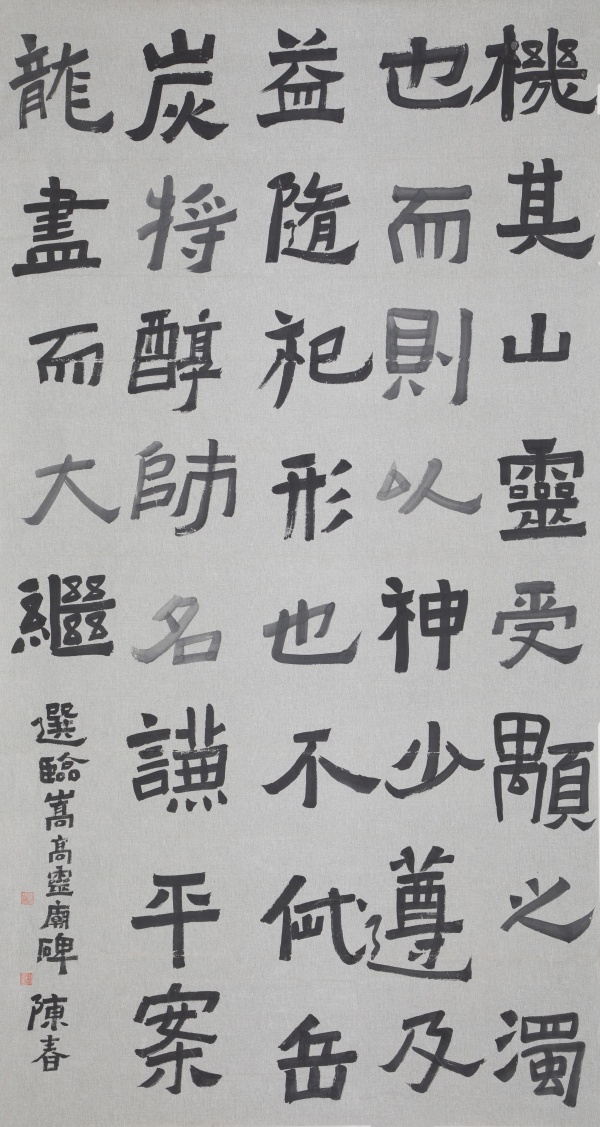 機其山靈受顒之濁
也而則以神少遵及
益隨祀形也不岳
炭將醇師名謙平案
龍盡而大繼
選臨嵩高靈廟碑 陳春